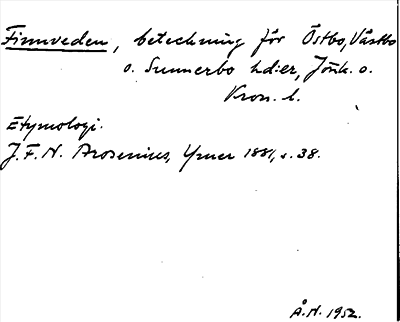 Finnveden, beteckning för Östbo, Västbo
o. Sunnerbo hd:er, Jönk. o.
Kron. l.
Etymologi.
J.F.N. Arosenius, Ymer 1881, s. 38.
Å.H. 1952.